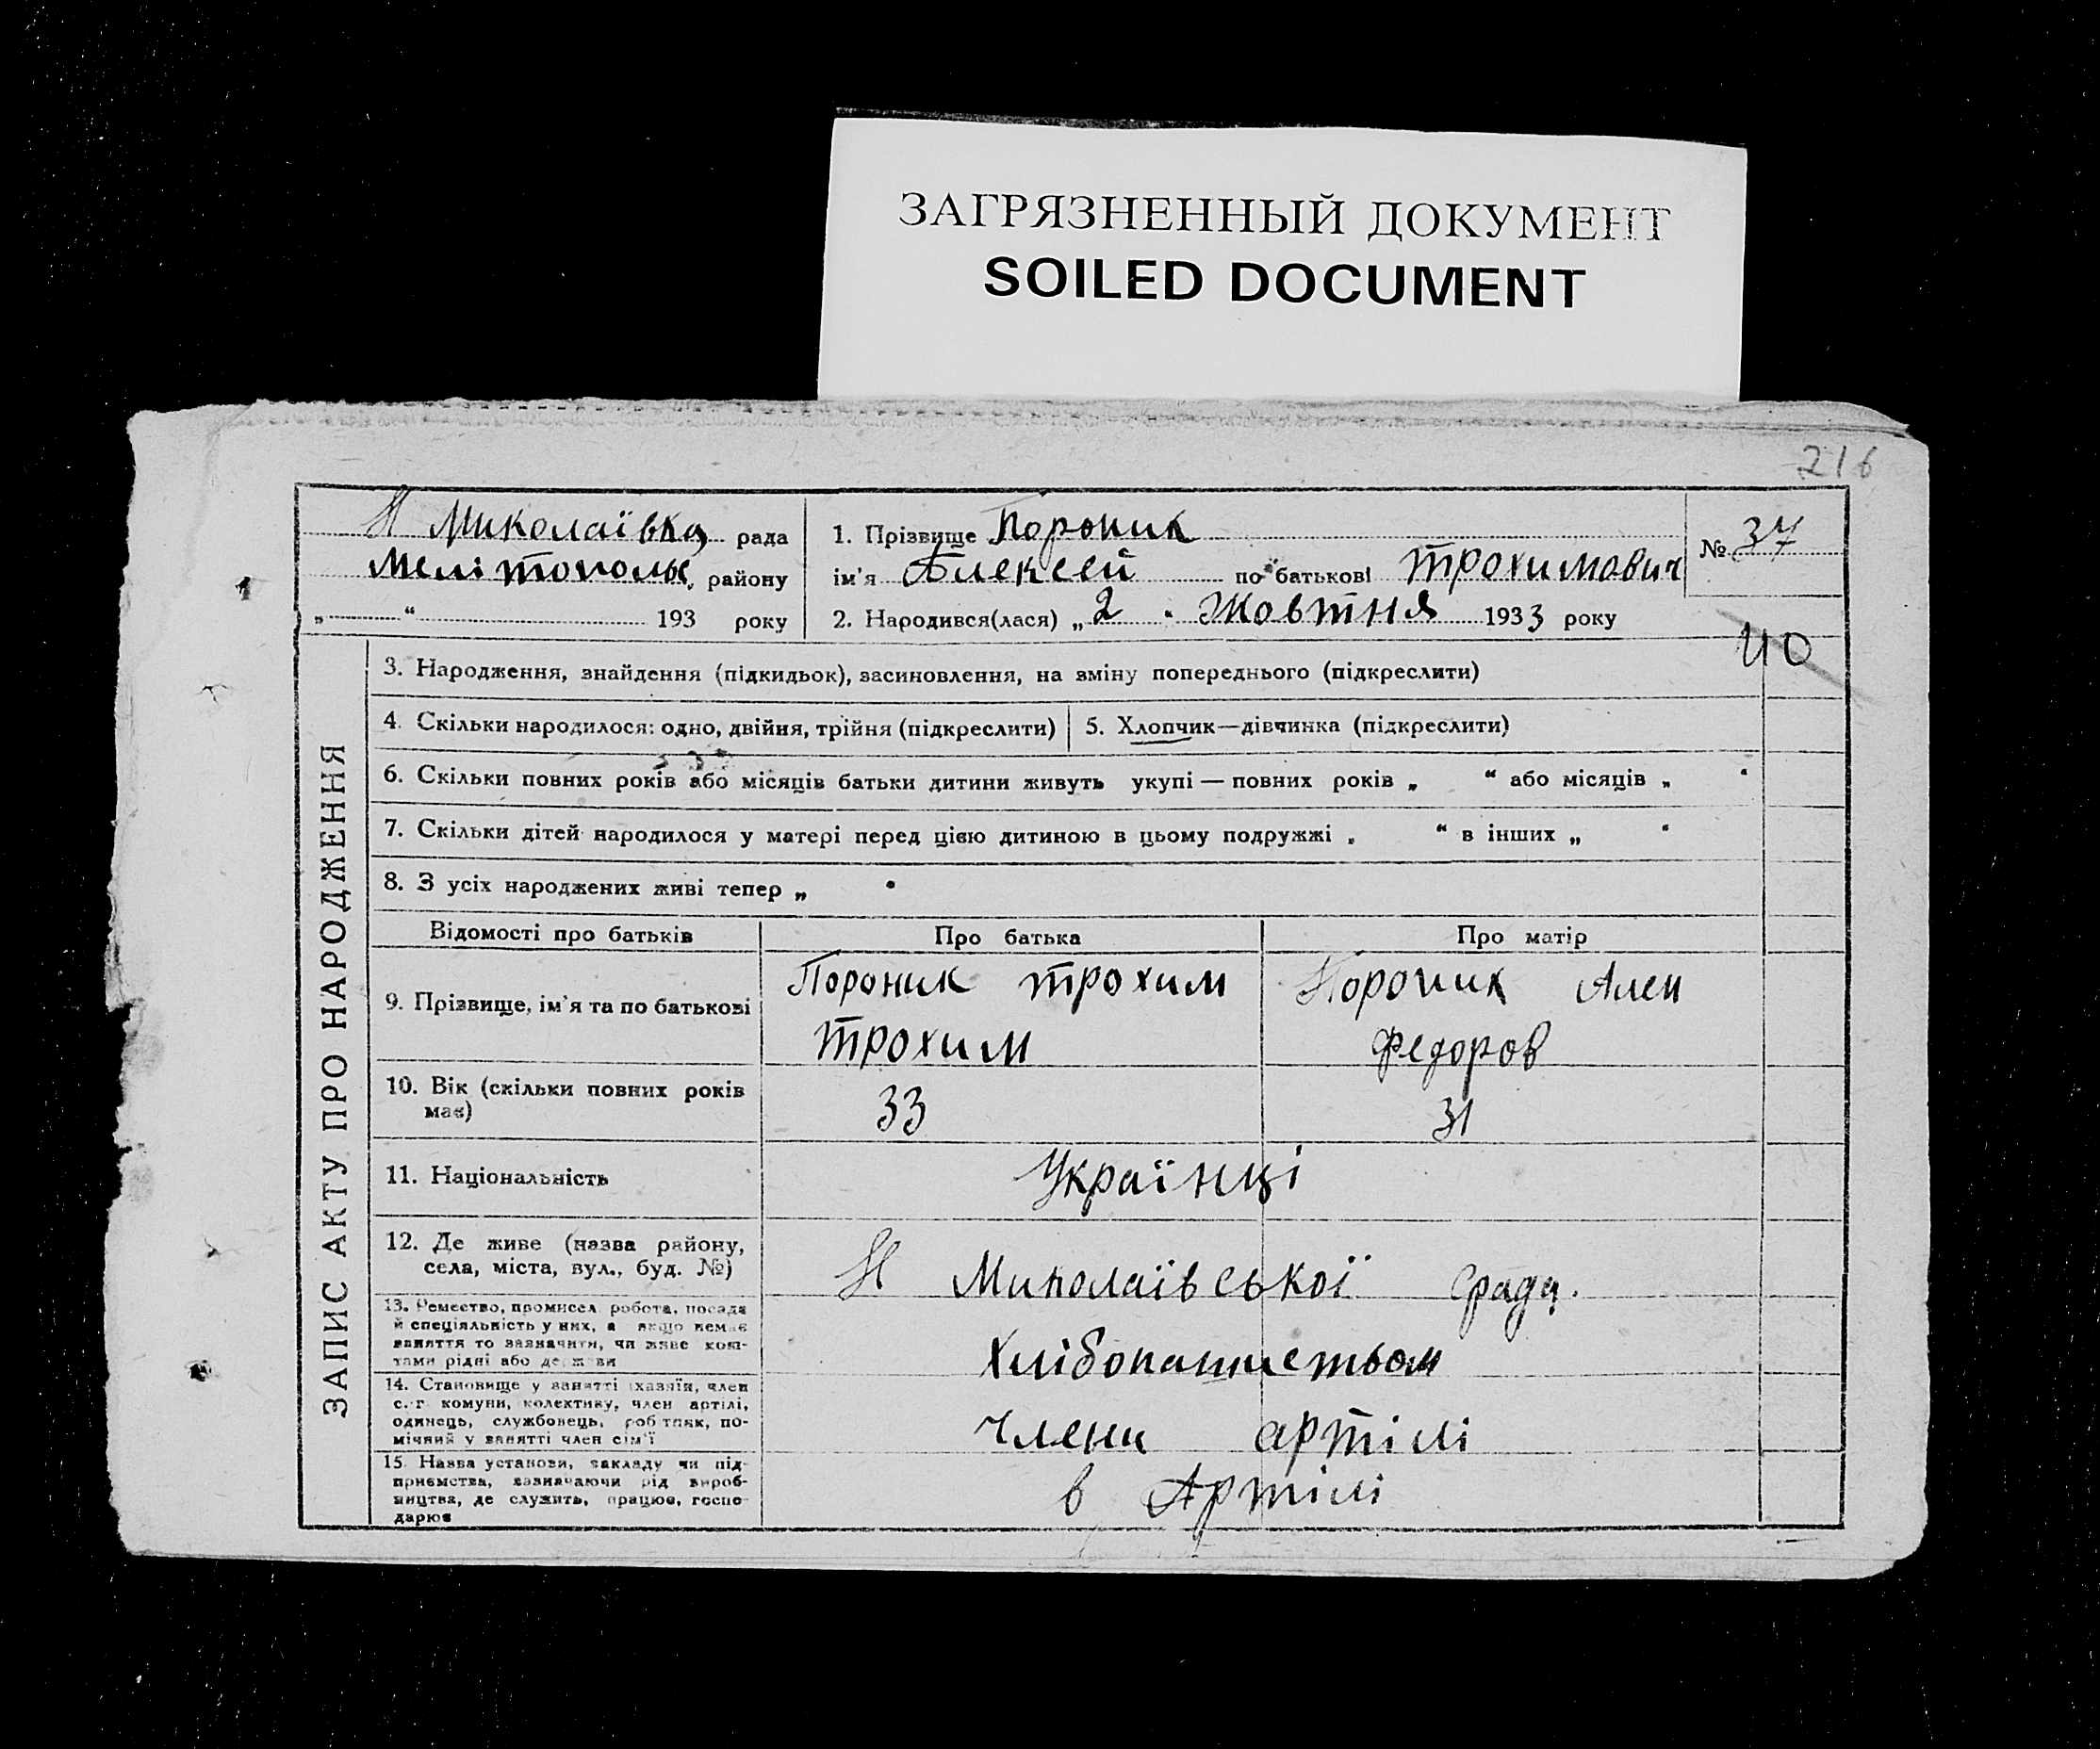 ЗАГРЯЗНЕННЫЙ ДОКУМЕНТ
SOILED DOCUMENT
216
Н Миколаївка рада
Мелітополь. району
„ “ 193 року
1. Прізвище Пороник
ім'я Алексей по батькові Трохимович
2. Народився(лася) „2 “ Жовтня 1933 року
№ 37
40
ЗАПИС АКТУ ПРО НАРОДЖЕННЯ
3. Народження, знайдення (підкидьок), засиновлення, на зміну попереднього (підкреслити)
4. Скільки народилося: одно, двійня, трійня (підкреслити) 5. Хлопчик—дівчинка (підкреслити)
6. Скільки повних років або місяців батьки дитини живуть укупі — повних років „ “ або місяців „ “
7. Скільки дітей народилося у матері перед цією дитиною в цьому подружжі „ “ в інших „ “
8. З усіх народжених живі тепер „ “
Відомості про батьків Про батька Про матір
9. Прізвище, ім'я та по батькові
Пороник Трохим
Трохим
Пороник Ален
Федоров
10. Вік (скільки повних років
має)
33 31
11. Національність Українці
12. Де живе (назва району,
села, міста, вул., буд. №)
Н Миколаївської
13. Ремество, промисел, робота, посада
й спеціяльність у них, а якщо немає
заняття то зазначити, чи живе кош-
тами рідні або держави
14. Становище у занятті (хазяїн, член
с.-г. комуни, колективу, член артілі,
одинець, службовець, робітник, по-
мічний у занятті член сім'ї
члени артілі
15. Назва установи, закладу чи під-
приємства, зазначаючи рід вироб-
ництва, де служить, працює, госпо-
дарює
в Артілі